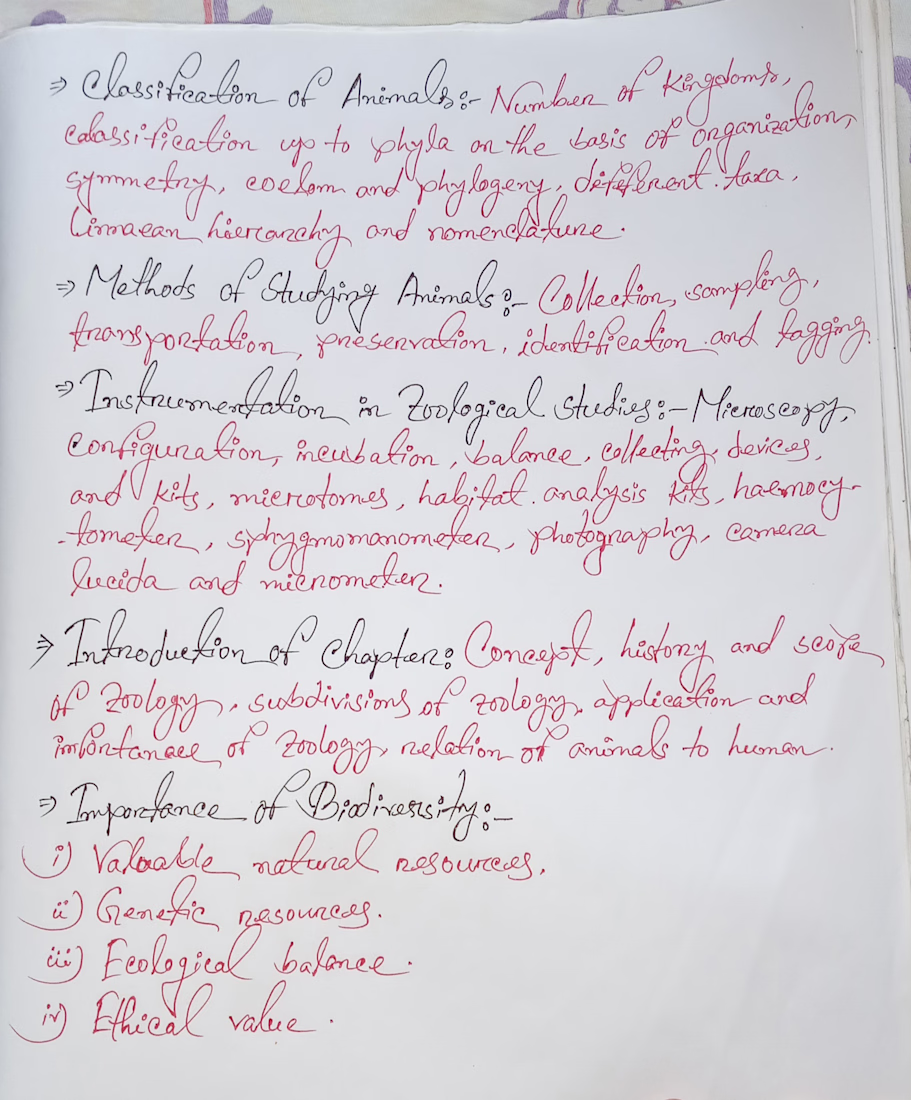 ⇒ Classification of Animals:- Number of Kingdoms,
calassification up to phyla on the basis of organization,
symmetry, coelom and phylogeny, different taxa,
Linnaean hierarchy and nomenclature.
⇒ Methods of Studying Animals:- Collection, sampling,
transportation, preservation, identification and tagging.
⇒ Instrumentation in Zoological studies:- Microscopy,
configuration, incubation, balance, collecting devices,
and kits, microtomes, habitat analysis kits, haemocy-
-tometer, sphygmomanometer, photography, camera
lucida and micrometer.
⇒ Introduction of Chapter: Concept, history and scope
of zoology, subdivisions of zoology, application and
importance of zoology, relation of animals to human.
⇒ Importance of Biodiversity:-
i) Valuable natural resources.
ii) Genetic resources.
iii) Ecological balance.
iv) Ethical value.